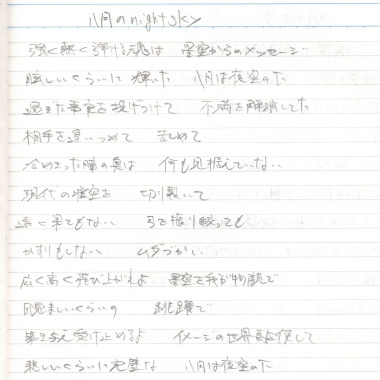 八月のnight sky
強く熱く弾ける魂は 星空からのメッセージ
眩しいくらいに輝いた 八月は夜空のた
過ぎた事実を投げつけて 不満を解消してた
相手を追いつめて 苦しめて
冷めきった瞳の奥は 何も見据えていない
現代の虚空を 切り裂いて
遠く果てもない 弓を振り絞っても
かすりもしない ムダづかい
広く高く飛び上がれよ 星空を我が物顔で
目覚ましいくらいの 跳躍で
受け止めるよ イメージの世界駆使して
悲しいくらいに完璧な 八月は夜空のた